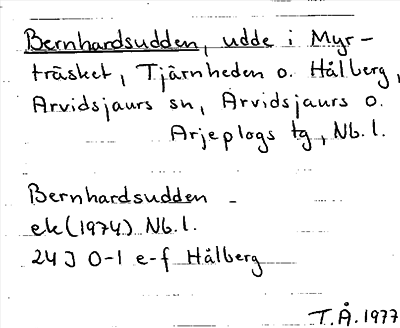 Bernhardsudden, udde i Myr-
träsket, Tjärnheden o. Hålberg,
Arvidsjaurs sn, Arvidsjaurs o.
Arjeplogs tg, Nb.l.
Bernhardsudden -
ek(1974) Nb.l.
24J 0-1 e-f Hålberg
T.Å.1977